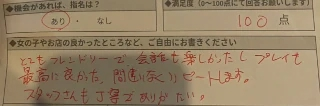 ◆機会があれば、指名は?
あり・なし
◆満足度(0〜100点にて回答お願いします)
100点
◆女の子やお店の良かったところなど、ご自由にお書きください
とてもフレンドリーで会話も楽しかったし、プレイも
最高に良かった。間違いなくリピートします。
スタッフさんも丁寧でありがたい。